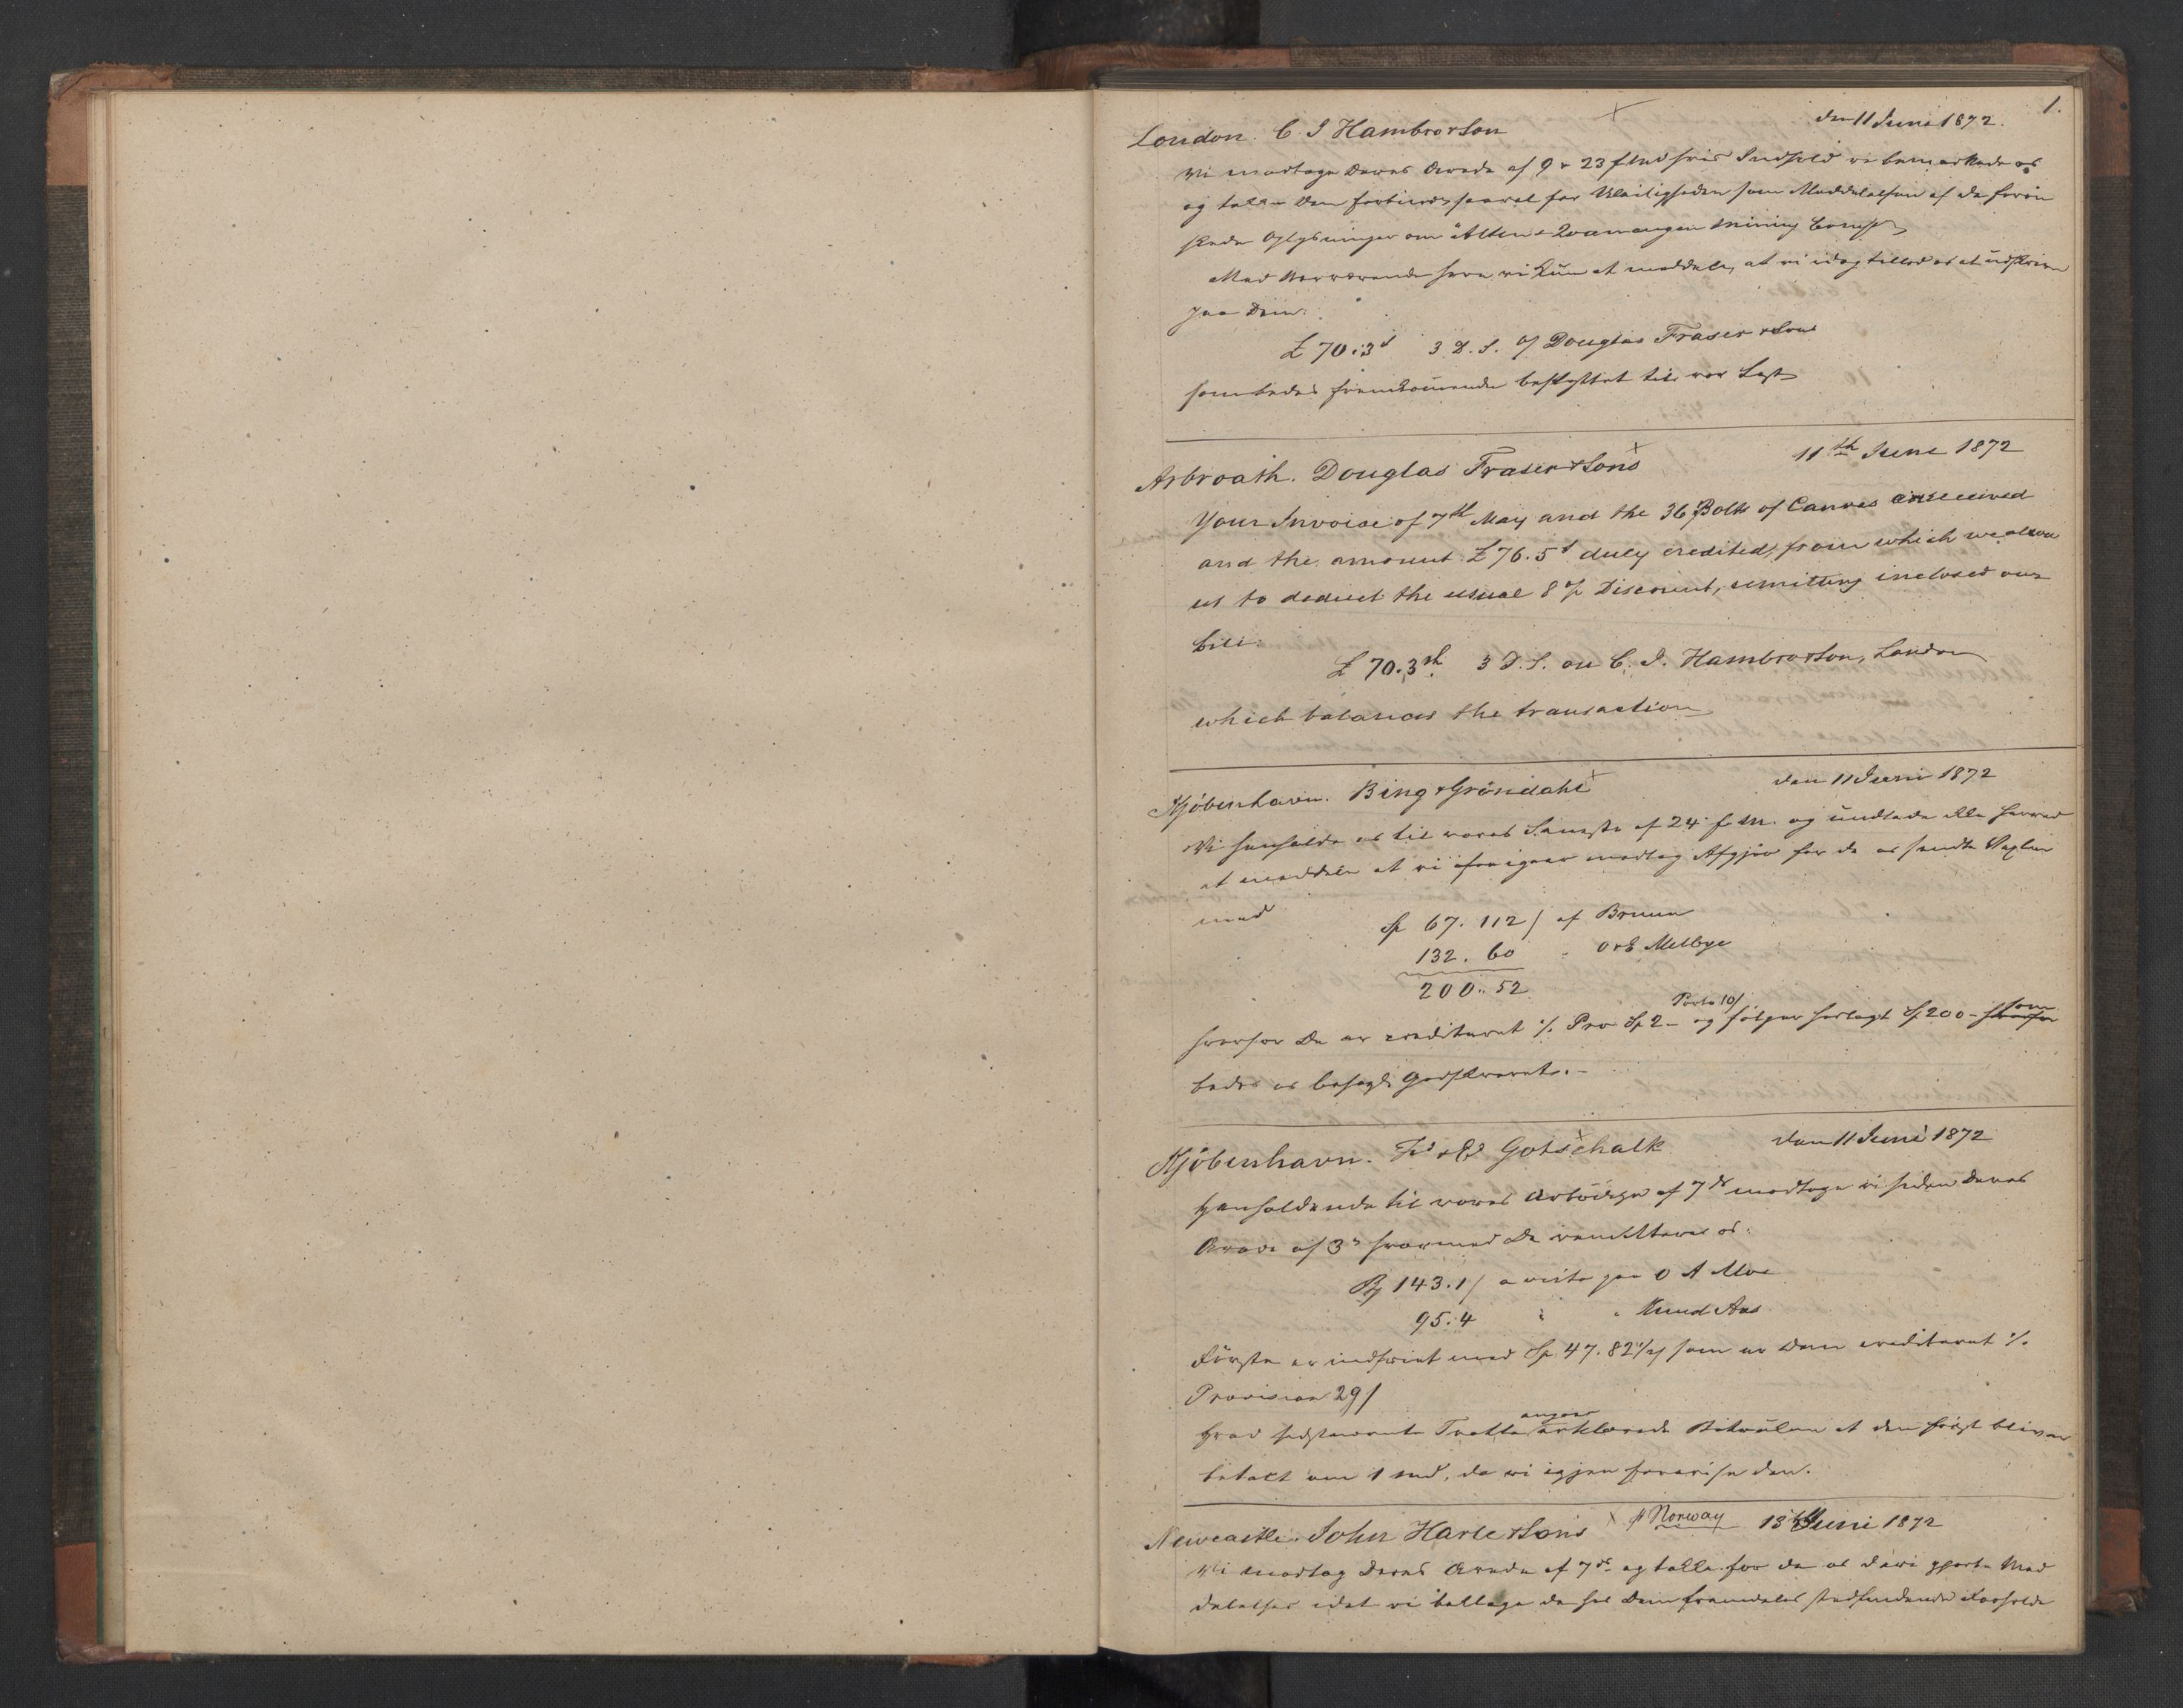 1.
London. C. J Hambro & Son den 11 Juni 1872.
Vi modtoge Deres Ærede af 9 & 23 f Md hvis Indhold vi bemærkede os
og takke Dem forbindtligst saavel for som Meddelelsen af de forøn
skede Oplysninger om Alten & Qvænangen Mining Comp
Med Nærværende have vi kun at meddele, at vi idag tillod os at udskrive
paa Dem:
£ 70:3 s 3 D. S. o/ Douglas Fraser & Sons
som bedes fremkommende beskyttet til vor Last
Arbroath. Douglas Fraser & Sons 11th June 1872
Your Invoice of 7th May and the 36 Bolts of Canvas received
and the amount £ 76. 5 s duly credited, from which we allow
us to deduct the usual 8 % Discount, remitting inclosed our
bill:
£ 70. 3 sh 3 D. S. on C. J. Hambro & Son, London
which balances the transaction
Kjöbenhavn. Bing & Gröndahl den 11 Juni 1872
Vi henholde os til vores Seneste af 24 f. M. og undlade ikke herved
at meddele at vi iforigaar modtog Afgjör for de os sendte Vexler
med
Sp 67. 112 / af Bruun
132. 60 " O & E Melbye
200. 52
hvorfor De er krediteret ./. Pro Sp 2 - Porto 10/ og følger herlagt Sp 200 - som
bedes os behagl: godskrevet. -
Kjöbenhavn. Fr & Ed Gotschalk den 11 Juni 1872
Henholdende til vores Ærbödige af 7 ds modtoge vi siden Deres
Ærede af 3 s hvormed De remitterer os:
Rd 143. 1 / a vista paa O A Moe
95. 4 " " Knud Aas
Förste er indfriet med Sp 47. 82 / som er Dem crediteret ./.
Provision 29 /
Hvad sidstnævnte Tratte angaar erklærede at den först bliver
betalt om 1 Md, da vi igjen forevise den.
Newcastle. John Harle & Sons p Norway 13 Juni 1872
Vi modtog Deres Ærede af 7 ds og takke for de os deri gjorte Med
delelser idet vi beklage de hos Dem fremdeles stedfindende Forholde